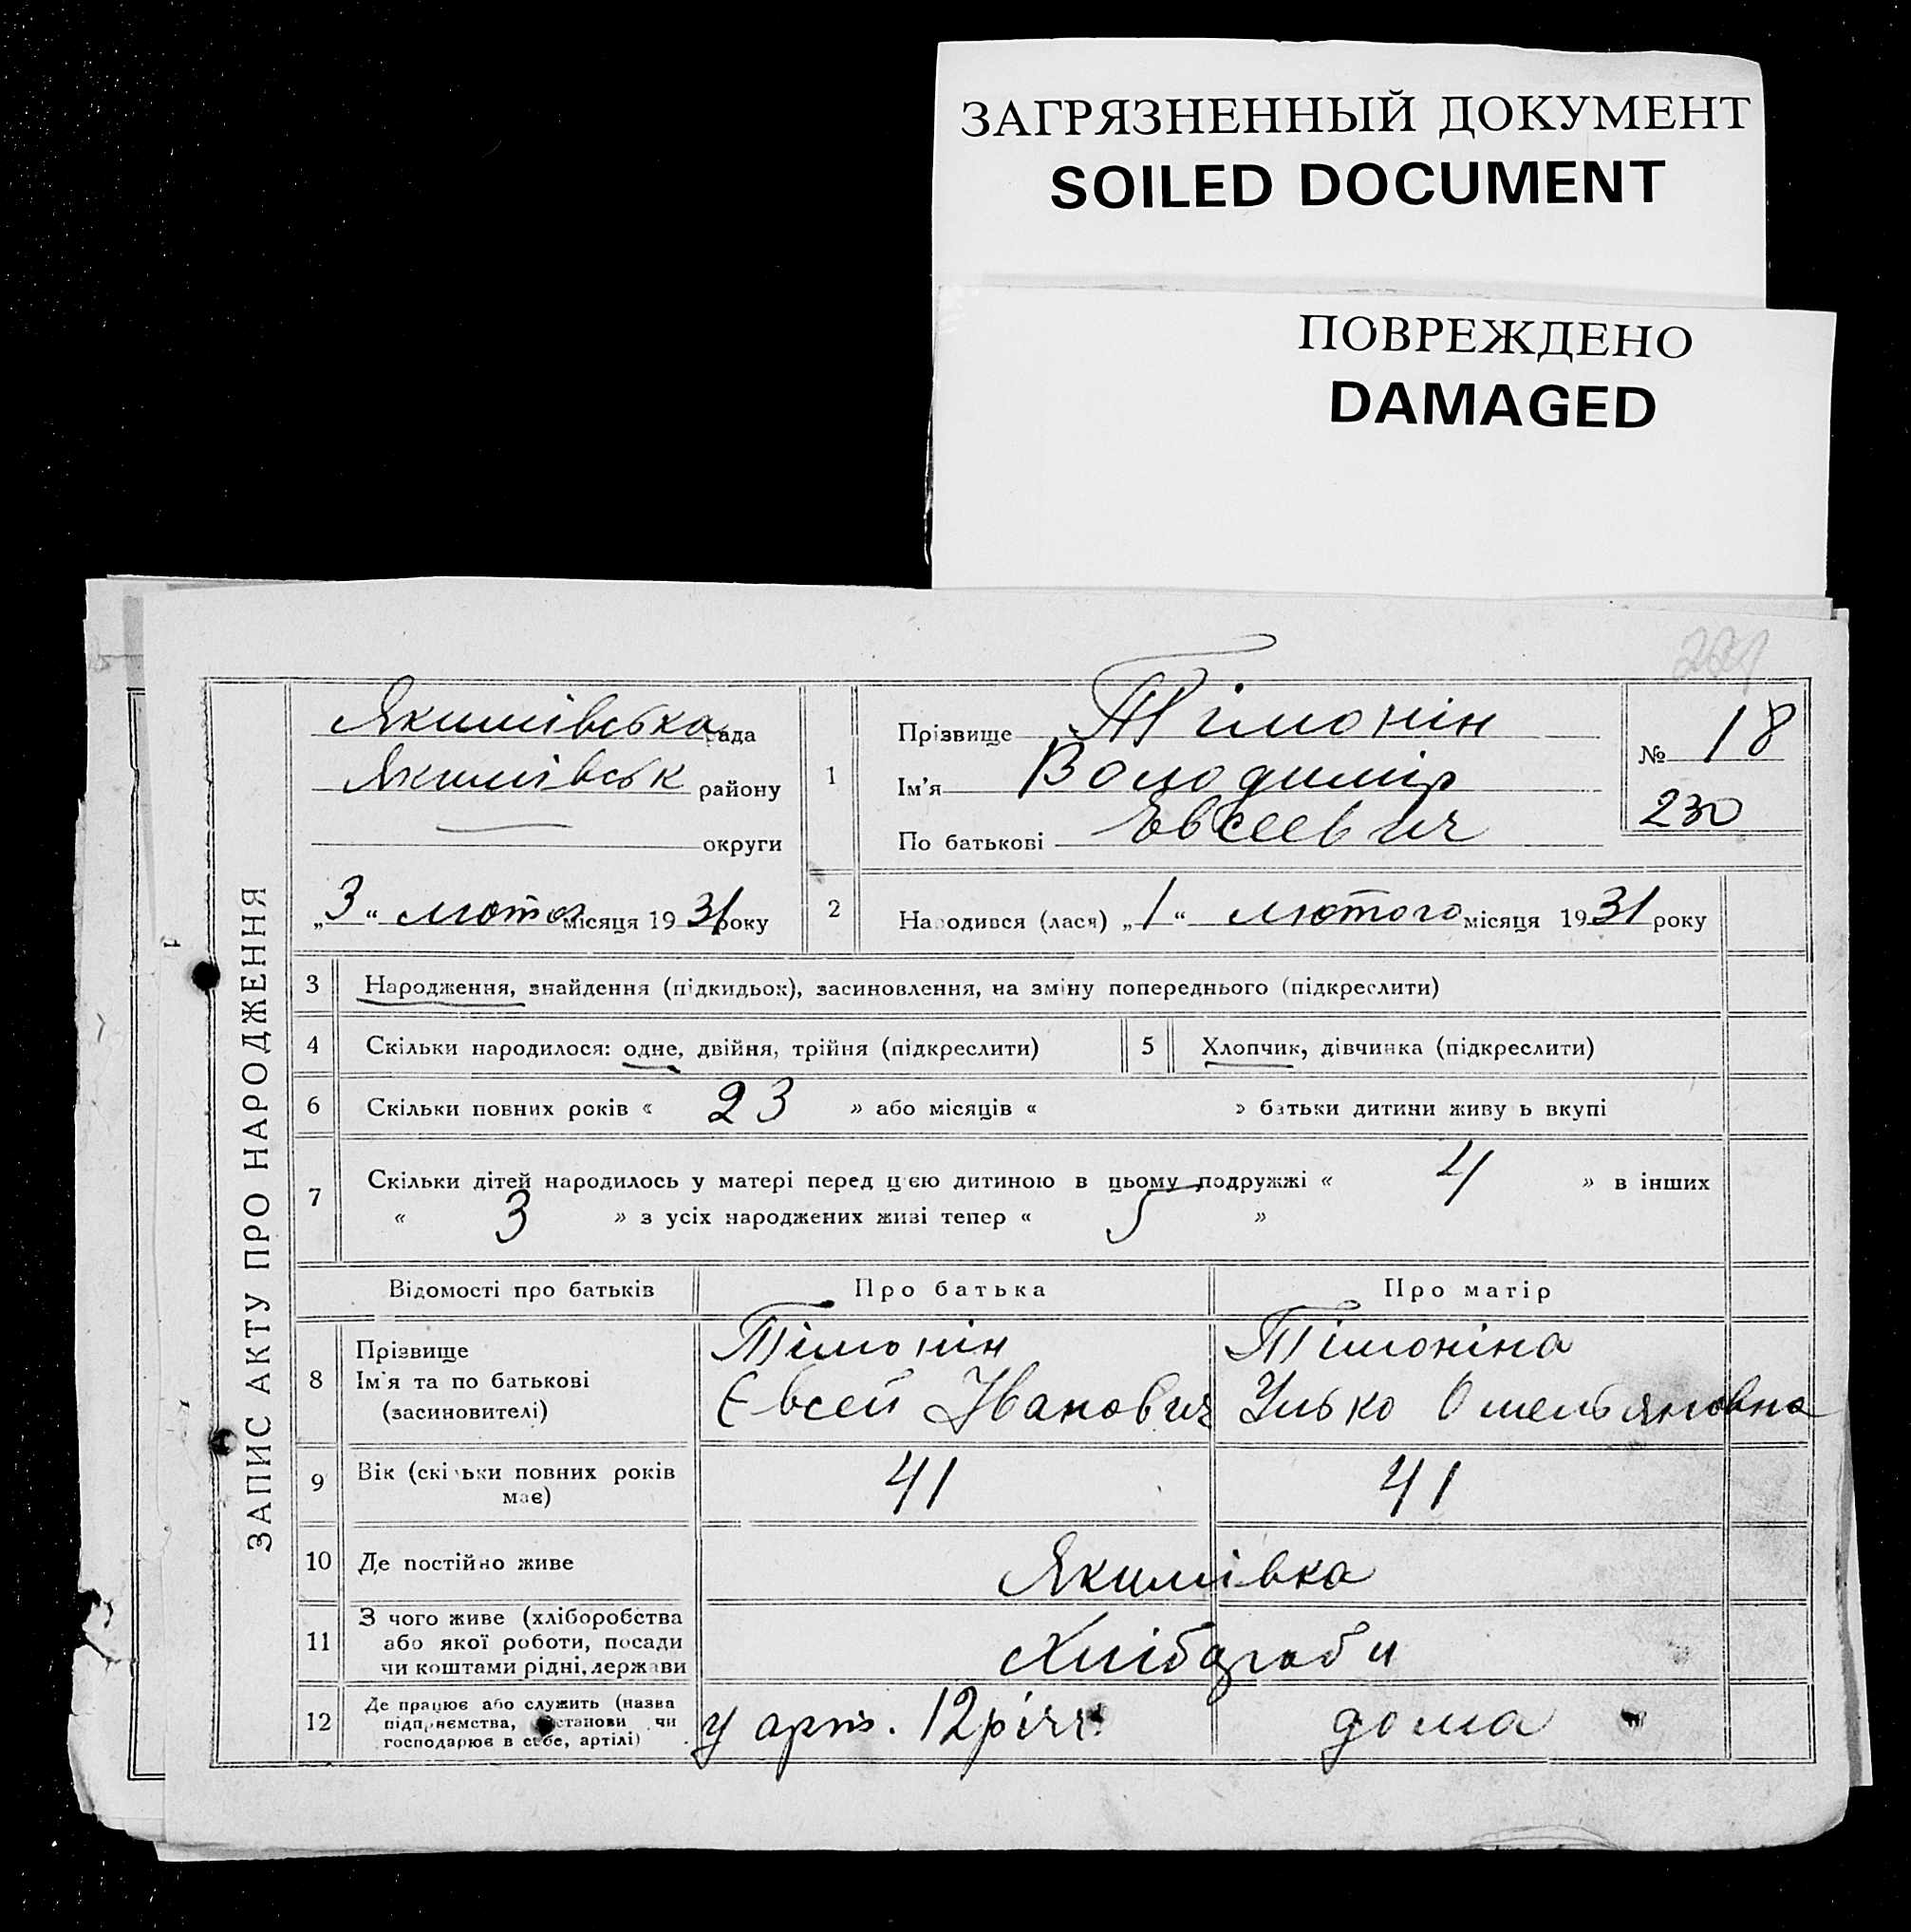 ЗАГРЯЗНЕННЫЙ ДОКУМЕНТ
SOILED DOCUMENT
ПОВРЕЖДЕНО
DAMAGED
ЗАПИС АКТУ ПРО НАРОДЖЕННЯ
Якимівська рада
Якимівськ району
округи
„3“ лютого місяця 1931 року
1
Прізвище Тімонін
Ім'я Володимір
По батькові Евсеевич
№ 18
230
2 Народився (лася) „1“ лютого місяця 1931 року
3 Народження, знайдення (підкидьок), засиновлення, на зміну попереднього (підкреслити)
4 Скільки народилося: одне, двійня, трійня (підкреслити)
5 Хлопчик, дівчинка (підкреслити)
6 Скільки повних років « 23 » або місяців « » батьки дитини живу ь вкупі
7 Скільки дітей народилось у матері перед цією дитиною в цьому подружжі « 4 » в інших
« 3 » з усіх народжених живі тепер « 5 »
Відомості про батьків Про батька Про матір
8 Прізвище Тімонін Тімоніна
Ім'я та по батькові Євсей Іванович Улько Омельяновна
(засиновителі)
9 Вік (скільки повних років має) 41 41
10 Де постійно живе Якимівка
11 З чого живе (хліборобства
або якої роботи, посади
чи коштами рідні, держави
Хлібороби
12 Де працює або служить (назва
підприємства, установи чи
господарює в себе, артілі)
у арт. 12 річ. дома